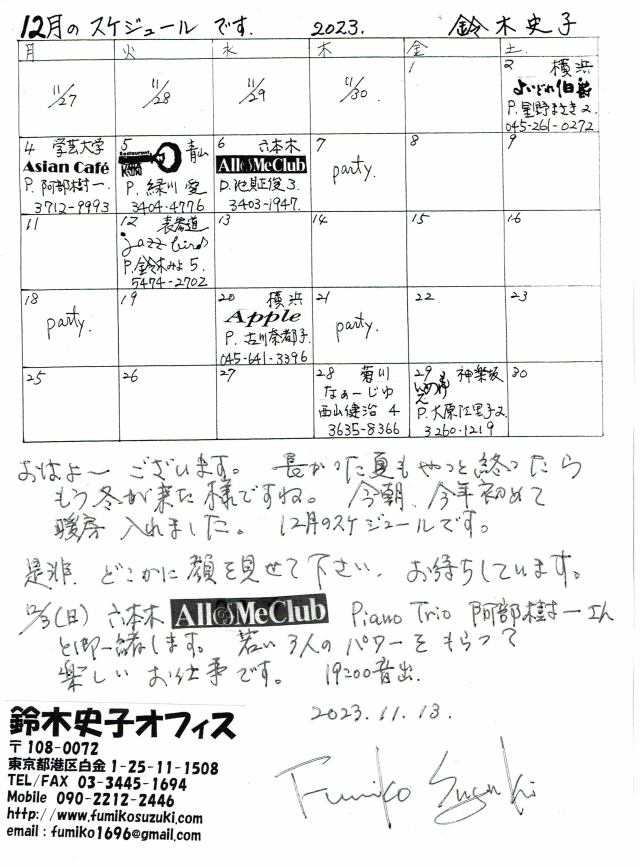 12月のスケジュール です. 2023. 鈴木史子
月 火 水 木 金 土
11/27 11/28 11/29 11/30 1 2 横浜
よいどれ伯爵
P. 星野まさき 2.
045-261-0272
4 学芸大学 5 青山 6 六本木 7 8 9
Asian Café Restaurant All of Me Club party.
P. 阿部樹一. P. 緑川愛 D. 池貝正俊 3.
3712-9993 3404-4776 3403-1947.
11 12 表参道 13 14 15 16
jazz bird
P. 鈴木みよ 5.
5474-2702
18 19 20 横浜 21 22 23
party. Apple party.
P. 古川奈都子
045-641-3396
25 26 27 28 菊川 29 神楽坂 30
なぁーじゅ もりのいえ
西山健治 4 P. 大原江里子 2.
3635-8366 3260-1219
おはよ〜 ございます。 長かった夏もやっと終ったら
もう冬が来た様ですね。 今朝、今年初めて
暖房 入れました。 12月のスケジュールです。
是非 どこかに顔を見せて下さい、 お待ちしています。
12/3(日) 六本木 All of Me Club Piano Trio 阿部樹一さん
と御一緒します。 若い3人のパワーをもらって
楽しいお仕事です。 19:00音出.
2023.11.13.
Fumiko Suzuki
鈴木史子オフィス
〒108-0072
東京都港区白金 1-25-11-1508
TEL/FAX 03-3445-1694
Mobile 090-2212-2446
http://www.fumikosuzuki.com
email : fumiko1696@gmail.com